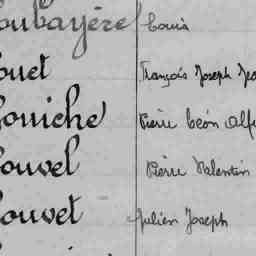 oubayère Louis
ouet François Joseph Jea
ouiche Pierre Léon Alf
ouvel Pierre Valentin
ouvet Julien Joseph